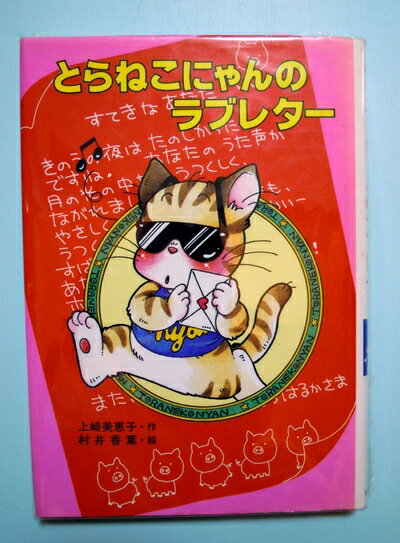 とらねこにゃんの
ラブレター
すてきなあなた
きの の夜は たのしかった
ですね。 なたの うた声が
月の の中 うつくしく、
ながれま も、
やさしく
うつく い—
すば
あた
また、
はるかさま
nya
TORANEKONYAN
TORANEKONYAN
TORANEKONYAN
上崎美恵子・作
村井香葉・絵